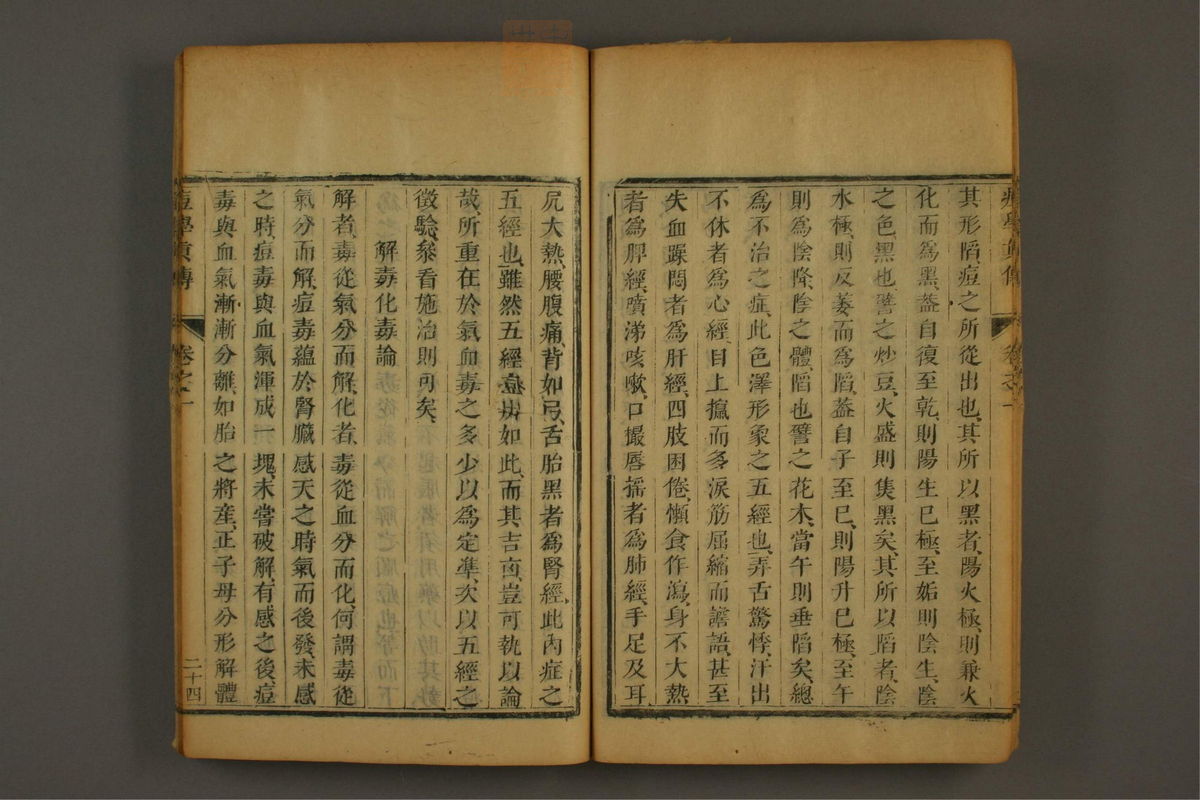 其形陷痘之所從出也其所以黑者陽火極則兼火
化而爲黑蓋自復至乾則陽生已極至姤則陰生陰
之色黑也譬之炒豆火盛則焦黑矣其所以陷者陰
水極則反萎而爲陷蓋自子至巳則陽升已極至午
則爲陰降陰之體陷也譬之花木當午則垂陷矣總
爲不治之症此色澤形象之五經也弄舌驚悸汗出
不休者爲心經目上攛而多淚筋屈縮而譫語甚至
失血躁悶者爲肝經四肢困倦懶食作瀉身不大熱
者爲脾經噴涕咳嗽口撮唇搖者爲肺經手足及耳
尻大熱腰腹痛背如弓舌胎黑者爲腎經此內症之
五經也雖然五經意界如此而其吉凶豈可執以論
哉所重在於氣血毒之多少以爲定準次以五經之
徵驗叅看施治則可矣
解毒化毒論
解者毒從氣分而解化者毒從血分而化何謂毒從
氣分而解痘毒蘊於腎臟感天之時氣而後發未感
之時痘毒與血氣渾成一塊未嘗破解有感之後痘
毒與血氣漸漸分離如胎之將產正子母分形解體
痘學眞傳
卷之一
二十四